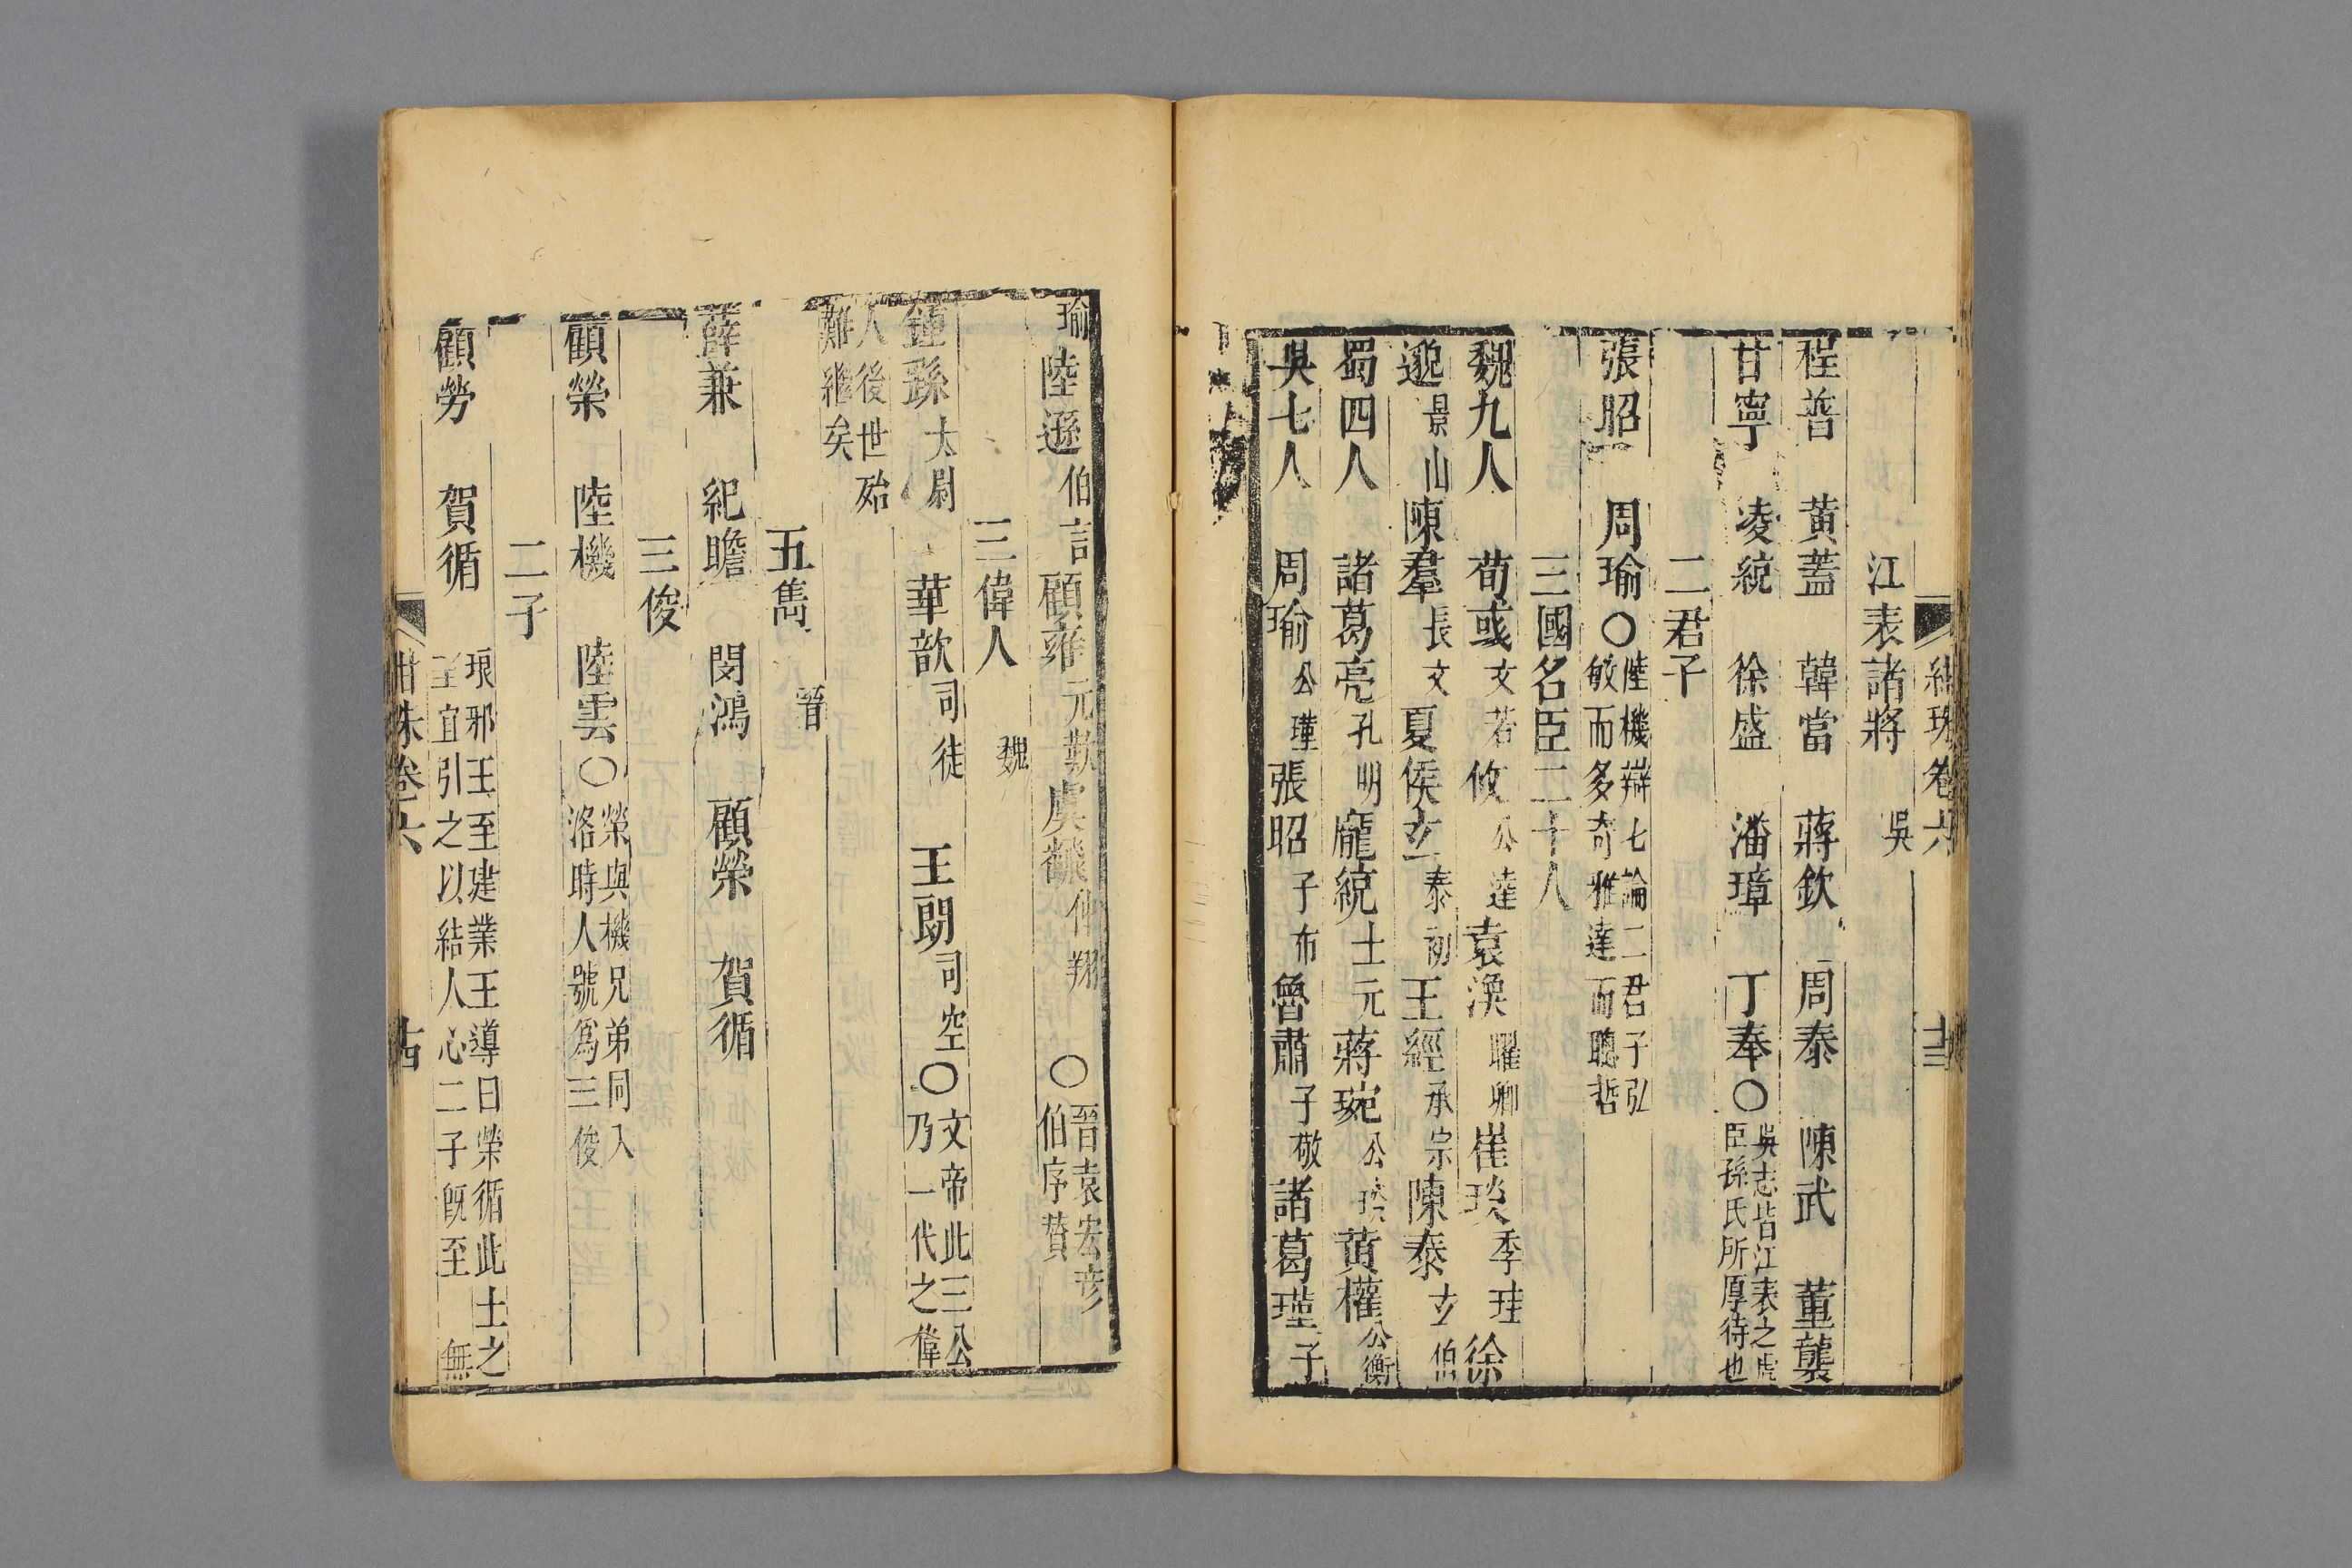 紺珠卷六 十三
江表諸將 吳
程普 黃蓋 韓當 蔣欽 周泰 陳武 董襲
甘寧 凌統 徐盛 潘璋 丁奉〇吳志皆江表之虎臣孫氏所厚待也
二君子
張昭 周瑜〇陸機辯七論二君子弘敏而多奇雅達而聰哲
三國名臣二十人
魏九人 荀彧文若 攸公達 袁渙曜卿 崔琰季珪 徐
邈景山 陳羣長文 夏侯玄泰初 王經承宗 陳泰玄伯
蜀四人 諸葛亮孔明 龐統士元 蔣琬公琰 黃權公衡
吳七人 周瑜公瑾 張昭子布 魯肅子敬 諸葛瑾子
瑜 陸遜伯言 顧雍元歎 虞翻仲翔 〇晉袁宏彦伯序贊
三偉人 魏
鍾繇太尉 華歆司徒 王朗司空〇文帝此三公乃一代之偉
人後世殆難繼矣
五雋 晉
薛兼 紀瞻 閔鴻 顧榮 賀循
三俊
顧榮 陸機 陸雲〇榮與機兄弟同入洛時人號爲三俊
二子
顧勞 賀循 琅邪王至建業王導曰榮循此土之 宜引之以結人心二子旣至 無
紺珠卷六 十四